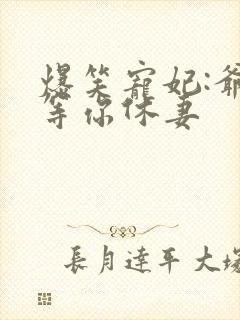 爆笑寵妃:爺
等你休妻
長月達平大塚